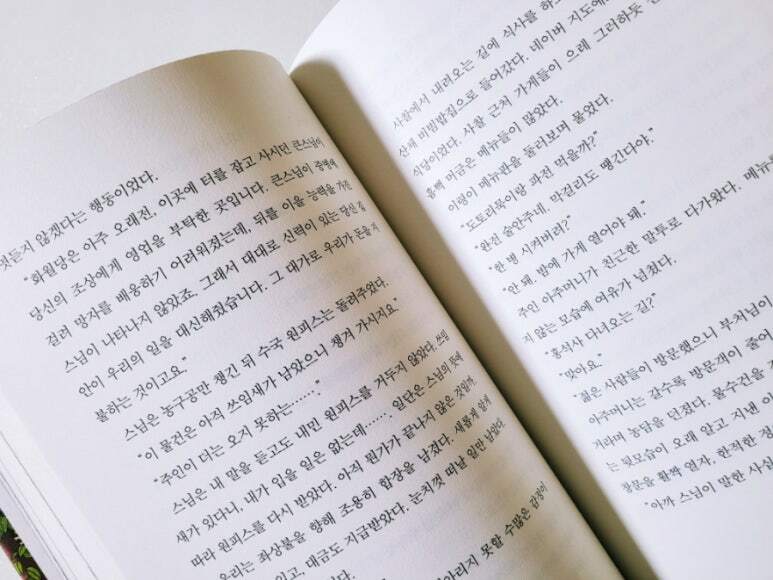 것듣지 않겠다는 행동이었다.
"화월당은 아주 오래전, 이곳에 터를 잡고 사시던 큰스님이
당신의 조상에게 영업을 부탁한 곳입니다. 큰스님이 증병에
걸려 망자를 배웅하기 어려워졌는데, 뒤를 이을 능력을 가진
스님이 나타나지 않았죠. 그래서 대대로 신력이 있는 당신 집
안이 우리의 일을 대신해줬습니다. 그 대가로 우리가 돈을 지
불하는 것이고요."
스님은 농구공만 챙긴 뒤 수국 원피스는 돌려주었다.
"이 물건은 아직 쓰임새가 남았으니 챙겨 가시지요."
"주인이 더는 오지 못하는……."
스님은 내 말을 듣고도 내민 원피스를 거두지 않았다. 쓰임
새가 있다니, 내가 입을 일은 없는데…… 일단은 스님의 뜻에
따라 원피스를 다시 받았다. 아직 뭔가가 끝나지 않은 것일까.
우리는 좌상불을 향해 조용히 합장을 남겼다. 새롭게 알게
있고, 대금도 지급받았다. 눈치껏 떠날 일만 남았다.
아리지 못할 수많은 감정이
사찰에서 내려오는 길에 식사를 하
산채 비빔밥집으로 들어갔다. 네이버 지도에
식당이었다. 사찰 근처 가게들이 으레 그러하듯
흠뻑 머금은 메뉴들이 많았다.
이랑이 메뉴판을 둘러보며 물었다.
"도토리묵이랑 파전 먹을까?"
"완전 술안주네, 막걸리도 땡긴다야."
"한 병 시켜버려?"
"안 돼. 밤에 가게 열어야 돼."
주인 아주머니가 친근한 말투로 다가왔다. 메뉴
지 않는 모습에 여유가 넘쳤다.
"홍석사 다녀오는 길?"
"맞아요."
"젊은 사람들이 방문했으니 부처님이
아주머니는 갈수록 방문객이 줄어
거라며 농담을 던졌다. 물수건을
는 뒷모습이 오래 알고 지낸 이
창문을 활짝 열자, 한적한 정
"아까 스님이 말한 사실